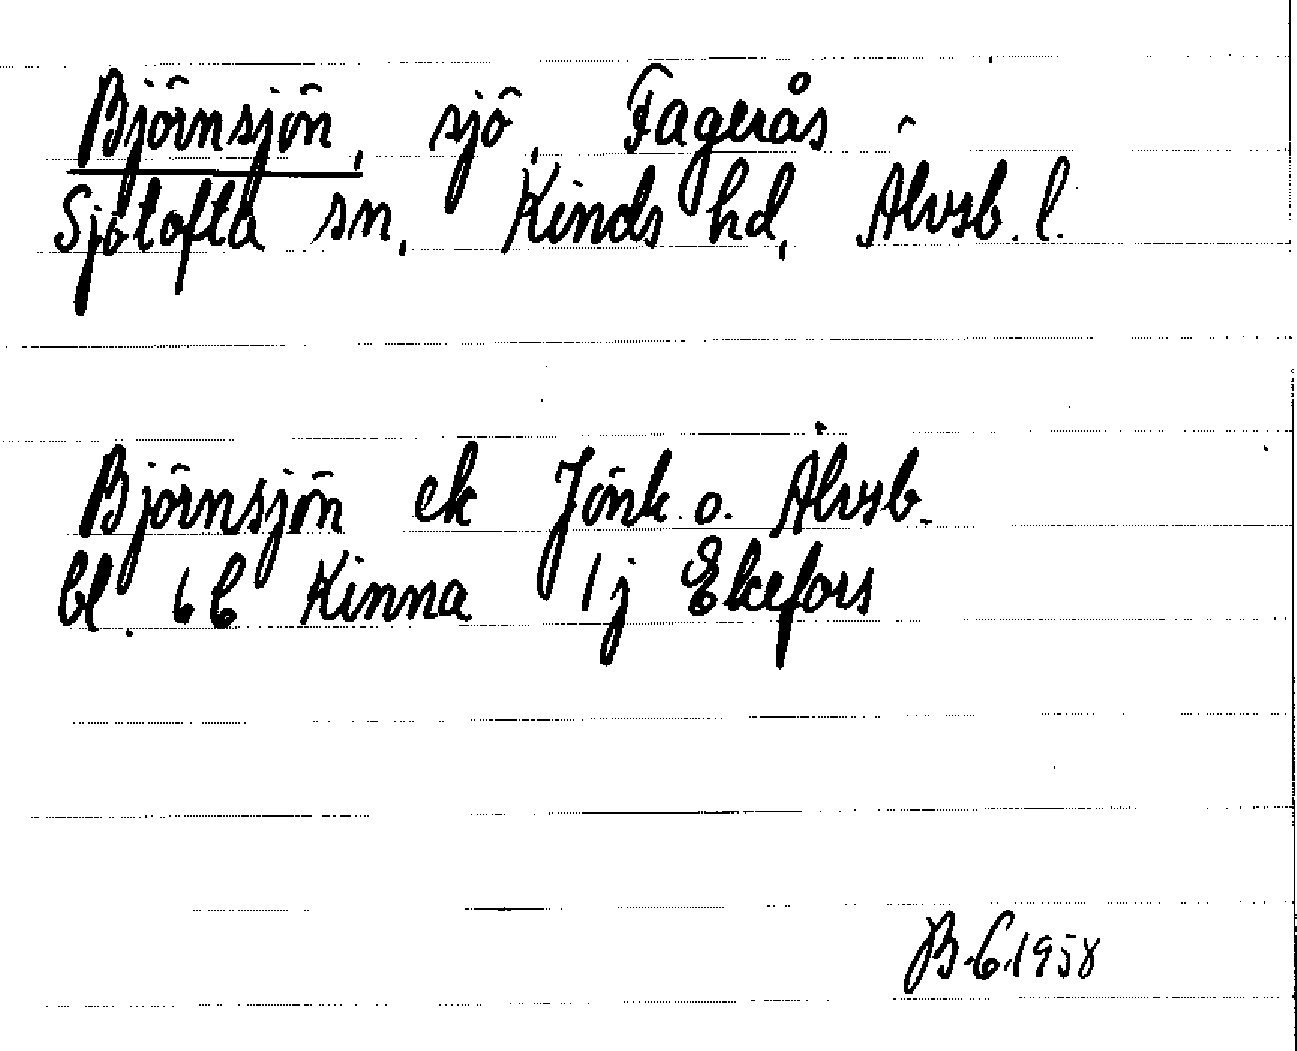 Björnsjön, sjö, Fagerås
Sjötofta sn, Kinds hd, Älvsb. l.
Björnsjön ek Jönk. o. Älvsb.
bl. 6 C Kinna 1j Ekefors
B.C.1958